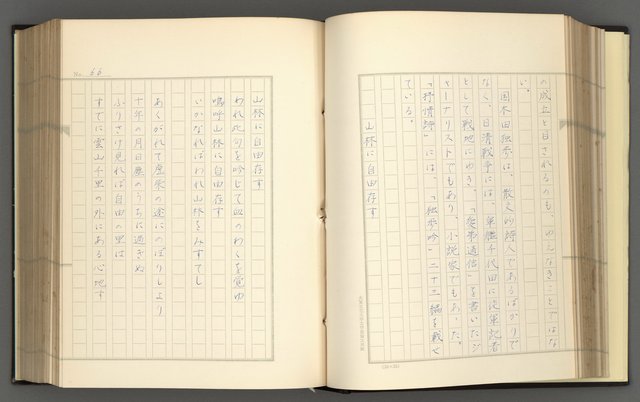 の成立と目されるのも、ゆえなきことではな
い。
国木田独歩は、散文的詩人であるばかりで
なく、日清戦争には、軍艦千代田に従軍記者
として戦地にゆき、「愛弟通信」を書いたジ
ャーナリストでもあり、小説家でもあった。
「抒情詩」には、「独歩吟」二十三編を載せ
ている。
山林に自由存す
(20×20)
No. 66
山林に自由存す
われ此句を吟じて血のわくを覚ゆ
嗚呼山林に自由存す
いかなればわれ山林をみすてし
あくがれて虚栄の途にのぼりしより
十年の月日塵のうちに過ぎぬ
ふりさけ見れば自由の里は
すでに雲山千里の外にある心地す